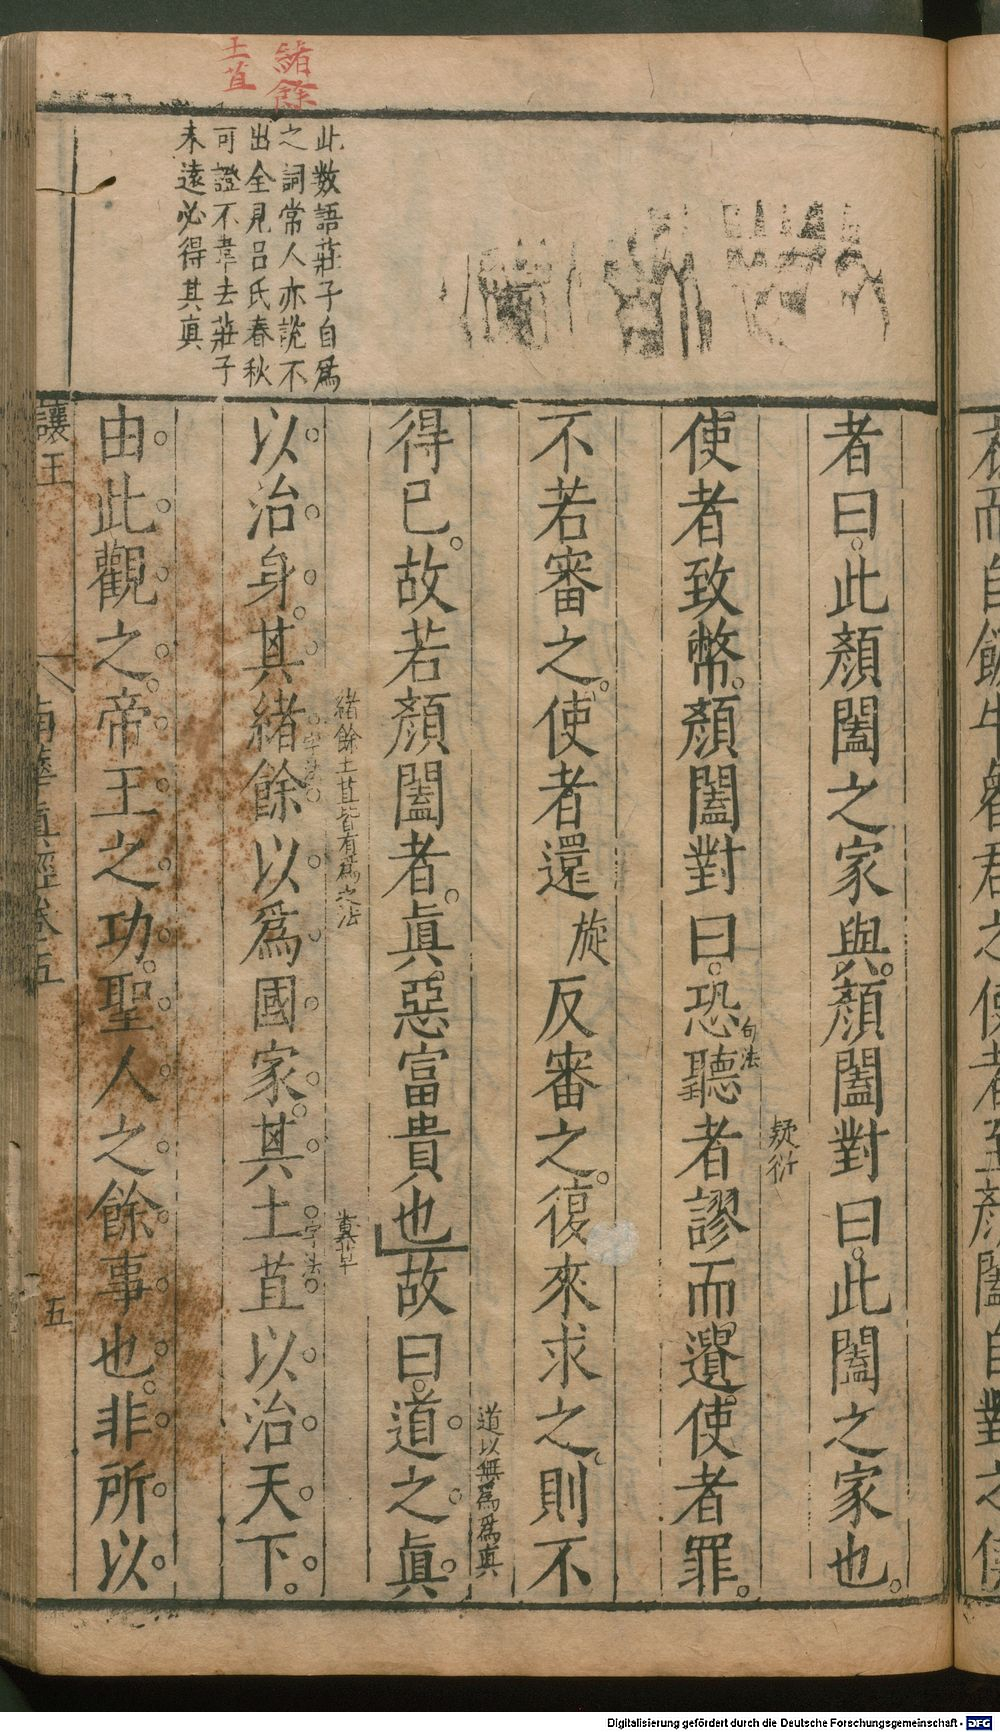 緒餘
土苴
此数語莊子自爲
之詞常人亦說不
出全見呂氏春秋
可證不韋去莊子
未遠必得其眞
者曰此顏闔之家與顏闔對曰此闔之家也
疑衍
句法
使者致幣顏闔對曰恐聽者謬而遺使者罪
不若審之使者還旋反審之復來求之則不
道以無爲爲真
得已故若顏闔者眞惡富貴也故曰道之眞
緒餘土苴皆有爲之法
糞草
字法
字法
以治身其緒餘以爲國家其土苴以治天下
由此觀之帝王之功聖人之餘事也非所以
讓王
南華眞經卷五
五
Digitalisierung gefördert durch die Deutsche Forschungsgemeinschaft - DFG